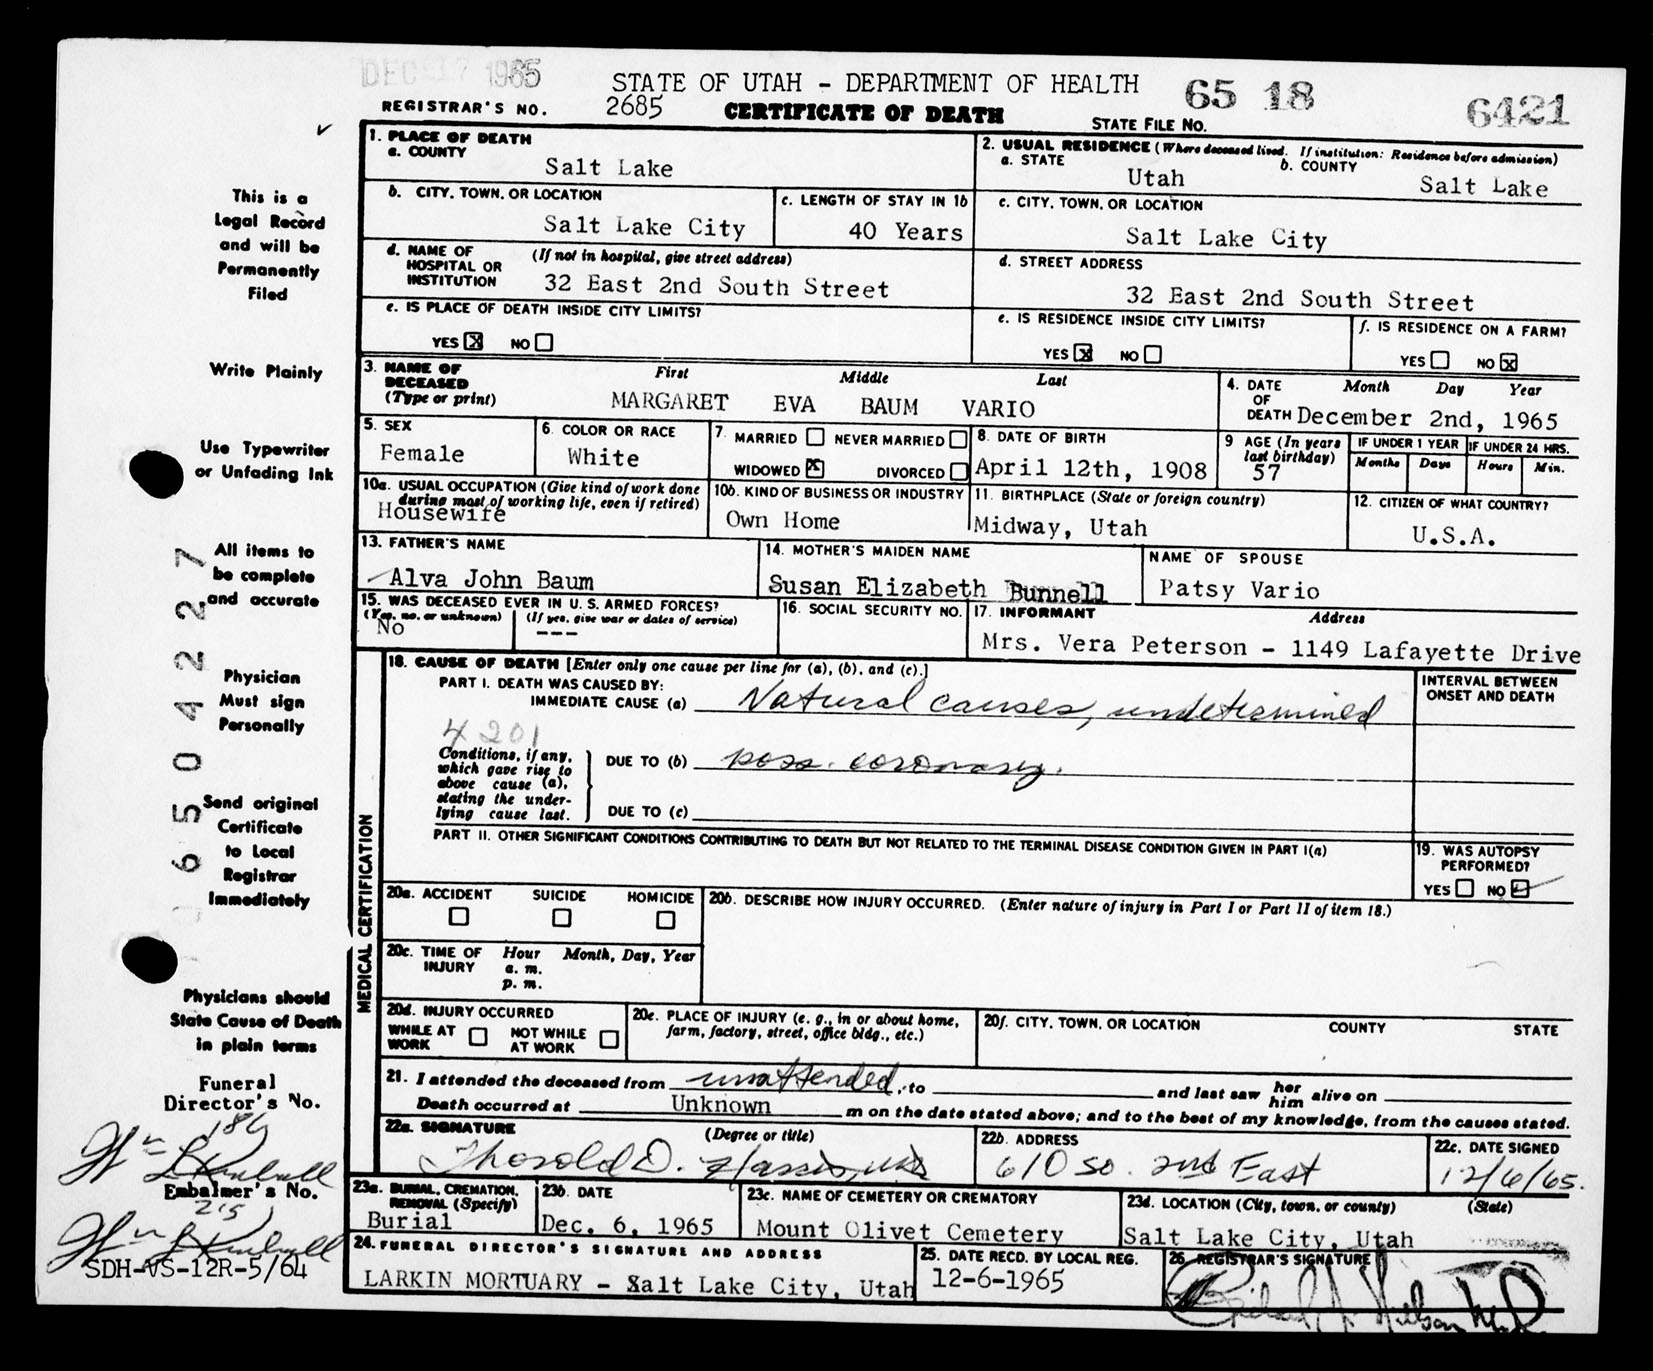 DEC 17 1965
STATE OF UTAH - DEPARTMENT OF HEALTH
65 18
6421
REGISTRAR'S NO. 2685
CERTIFICATE OF DEATH
STATE FILE NO.
This is a
Legal Record
and will be
Permanently
Filed
Write Plainly
Use Typewriter
or Unfading Ink
All items to
be complete
and accurate
Physician
Must sign
Personally
Send original
Certificate
to Local
Registrar
Immediately
Physicians should
State Cause of Death
in plain terms
Funeral
Director's No.
186
Embalmer's No.
215
SDH-VS-12R-5/64
6504227
1. PLACE OF DEATH
a. COUNTY
Salt Lake
2. USUAL RESIDENCE (Where deceased lived. If institution: Residence before admission)
a. STATE
Utah
b. COUNTY
Salt Lake
b. CITY, TOWN, OR LOCATION
Salt Lake City
c. LENGTH OF STAY IN 1b
40 Years
c. CITY, TOWN, OR LOCATION
Salt Lake City
d. NAME OF HOSPITAL OR INSTITUTION
(If not in hospital, give street address)
32 East 2nd South Street
d. STREET ADDRESS
32 East 2nd South Street
e. IS PLACE OF DEATH INSIDE CITY LIMITS?
YES X NO
e. IS RESIDENCE INSIDE CITY LIMITS?
YES X NO
f. IS RESIDENCE ON A FARM?
YES NO X
3. NAME OF DECEASED (Type or print)
First Middle Last
MARGARET EVA BAUM VARIO
4. DATE OF DEATH
Month Day Year
December 2nd, 1965
5. SEX
Female
6. COLOR OR RACE
White
7. MARRIED NEVER MARRIED
WIDOWED X DIVORCED
8. DATE OF BIRTH
April 12th, 1908
9 AGE (In years last birthday)
57
IF UNDER 1 YEAR
Months Days
IF UNDER 24 HRS.
Hours Min.
10a. USUAL OCCUPATION (Give kind of work done during most of working life, even if retired)
Housewife
10b. KIND OF BUSINESS OR INDUSTRY
Own Home
11. BIRTHPLACE (State or foreign country)
Midway, Utah
12. CITIZEN OF WHAT COUNTRY?
U.S.A.
13. FATHER'S NAME
Alva John Baum
14. MOTHER'S MAIDEN NAME
Susan Elizabeth Bunnell
NAME OF SPOUSE
Patsy Vario
15. WAS DECEASED EVER IN U.S. ARMED FORCES?
(Yes, no, or unknown) (If yes, give war or dates of service)
No ---
16. SOCIAL SECURITY NO.
17. INFORMANT Address
Mrs. Vera Peterson - 1149 Lafayette Drive
MEDICAL CERTIFICATION
18. CAUSE OF DEATH [Enter only one cause per line for (a), (b), and (c).]
PART I. DEATH WAS CAUSED BY:
IMMEDIATE CAUSE (a) Natural causes, undetermined
INTERVAL BETWEEN ONSET AND DEATH
4201
Conditions, if any, which gave rise to above cause (a), stating the underlying cause last.
DUE TO (b) poss. coronary.
DUE TO (c)
PART II. OTHER SIGNIFICANT CONDITIONS CONTRIBUTING TO DEATH BUT NOT RELATED TO THE TERMINAL DISEASE CONDITION GIVEN IN PART I(a)
19. WAS AUTOPSY PERFORMED?
YES NO
20a. ACCIDENT SUICIDE HOMICIDE
20b. DESCRIBE HOW INJURY OCCURRED. (Enter nature of injury in Part I or Part II of item 18.)
20c. TIME OF INJURY
Hour Month, Day, Year
a. m.
p. m.
20d. INJURY OCCURRED
WHILE AT WORK NOT WHILE AT WORK
20e. PLACE OF INJURY (e. g., in or about home, farm, factory, street, office bldg., etc.)
20f. CITY, TOWN, OR LOCATION COUNTY STATE
21. I attended the deceased from unattended, to and last saw her him alive on
Death occurred at Unknown m on the date stated above; and to the best of my knowledge, from the causes stated.
22a. SIGNATURE (Degree or title)
Thorold D. Harris, M.D.
22b. ADDRESS
610 so. 2nd East
22c. DATE SIGNED
12/6/65.
23a. BURIAL, CREMATION, REMOVAL (Specify)
Burial
23b. DATE
Dec. 6, 1965
23c. NAME OF CEMETERY OR CREMATORY
Mount Olivet Cemetery
23d. LOCATION (City, town, or county) (State)
Salt Lake City, Utah
24. FUNERAL DIRECTOR'S SIGNATURE AND ADDRESS
LARKIN MORTUARY - Salt Lake City, Utah
25. DATE RECD. BY LOCAL REG.
12-6-1965
26. REGISTRAR'S SIGNATURE